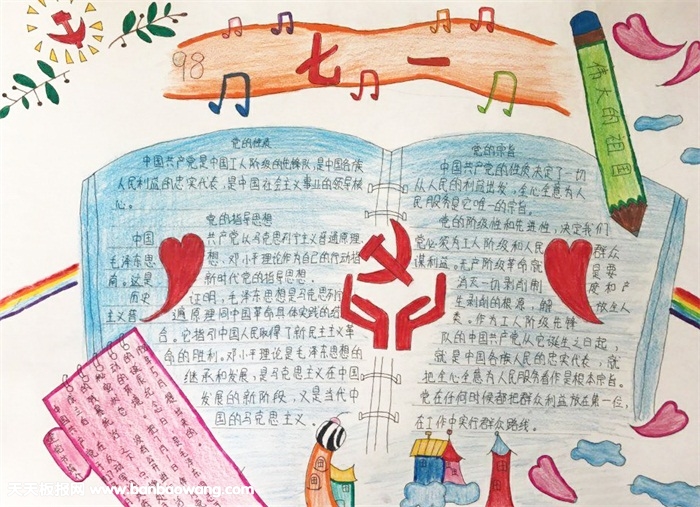 98
七一
伟大的祖国
党的性质
中国共产党是中国工人阶级的先锋队,是中国各族
人民利益的忠实代表,是中国社会主义事业的领导核
心。
党的指导思想
中国共产党从马克思列宁主义普遍原理、
毛泽东思想、邓小平理论作为自己的行动指
南。这是新时代党的指导思想.
历史证明,毛泽东思想是马克思列宁
主义普遍原理同中国革命具体实践的结
合。它指引中国人民取得了新民主主义革
命的胜利。邓小平理论是毛泽东思想的
继承和发展,是马克思主义在中国
发展的新阶段,又是当代中
国的马克思主义.
党的宗旨
中国共产党的性质决定了一切
从人民的利益出发,全心全意为人
民服务是它唯一的宗旨。
党的阶级性和先进性,决定我们
党必须为工人阶级和人民群众
谋利益。无产阶级革命就是要
消灭一切剥削制度和产
生剥削的根源,解放全人
类。作为工人阶级先锋
队的中国共产党从它诞生之日起,
就是中国各族人民的忠实代表,就
把全心全意为人民服务看作是根本宗旨。
党在任何时候都把群众利益放在第一位,
在工作中实行群众路线。
天天板报网 www.banbaowang.com